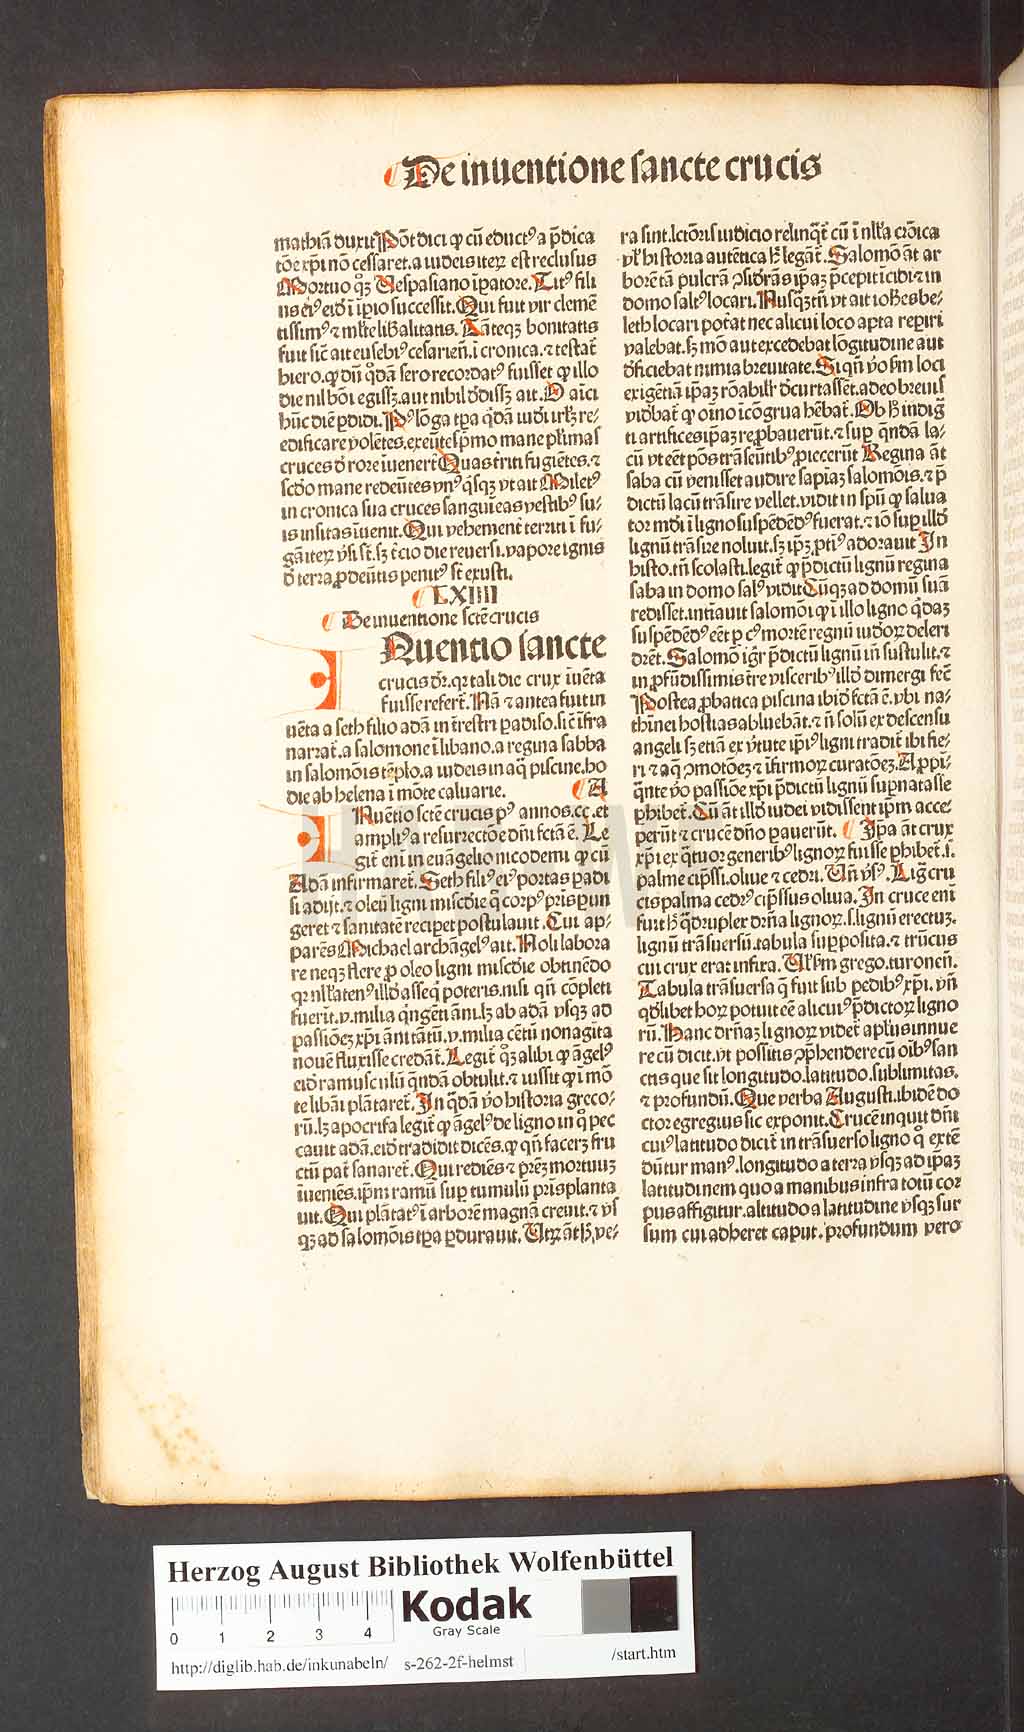 De inuentione sancte crucis
mathiā duxit Pōt dici ꝙ cū educt⁹ a p̄dica
tōe xp̄i nō cessaret. a iudeis iterꝝ est reclusus
Mortuo qͦꝫ Uespasiano īpatore. Tit⁹ fili
us ei⁹ eidē ī īpio successit. Qui fuit vir clemē
tissim⁹ ⁊ mlr̄e liƀalitatis. Tāteqꝫ bonitatis
fuit sic̄ ait eusebi⁹ cesarien̄. ī cronica. ⁊ testat̄
hiero. ꝙ dū qͣdā sero recordat⁹ fuisset ꝙ illo
die nil bōi egissꝫ. aut nihil dedissꝫ ait. O aīci
hūc diē ꝑdidi. P⁹ lōga tꝑa qͥdā iudī irlr̄ꝫ re-
edificare volētes. exeūtes pͥmo mane plʼimas
cruces ď rore īuenert̄ Quas trͥiti fugiētes. ⁊
scd̄o mane redeūtes vn⁹ qͥsqꝫ vt ait Milet⁹
in cronica sua cruces sanguīeas vestib⁹ su-
is insitas īuenit. Qui vehement̄ territi ī fu-
gā iterꝝ v̓si st̄. sꝫ tc̓io die reuersi. vapore ignis
ď terra ꝓdeūtis penit⁹ st̄ exusti.
LXIIII
De inuentione sctē crucis
INuentio sancte
crucis dr̄. qꝛ tali die crux iuēta
fuisse refert̄. Nā ⁊ antea fuit in
uēta a seth filio adā in trestri ꝑadiso. sic̄ īfra
narrat̄. a salomone ī libano. a regina sabba
in salomōis tēplo. a iudeis in aq̄ piscine. ho
die ab helena ī mōte caluarie. A
INuētio sctē crucis p⁹ annos. cc. et
ampli⁹ a resurrectōe dn̄i fctā ē. Le
git̄ eni in euāgelio nicodemi ꝙ cū
Adā infirmaret̄. Seth fili⁹ ei⁹ portas ꝑadi
si adijt. ⁊ oleū ligni miscd̄ie qͦ corp⁹ pr̄is ꝑun
geret ⁊ sanitatē reciꝑet postulauit. Cui ap-
parēs Michael archāgel⁹ ait. Noli labora
re neqꝫ flere ꝓ oleo ligni miscd̄ie obtinēdo
qꝛ nllʼaten⁹ illď asseqͥ poteris. nisi qn̄ cōpleti
fuerīt. v. milia qͥngēti āni. lꝫ ab adā vsqꝫ ad
passiōeꝫ xp̄i āni tātū. v. milia cētū nonagīta
nouē fluxisse credāt̄. Legit̄ qͦꝫ alibi ꝙ āgel⁹
eidē ramusculū qͣndā obtulit. ⁊ iussit ꝙ ī mō
te libāi plātaret̄. In qͣdā v̓o historia greco-
rū. lꝫ apocrifa legit̄ ꝙ āgel⁹ de ligno in qͦ pec
cauit adā. eidē tradidit dicēs. ꝙ qn̄ facerꝫ fru
ctū pat̄ sanaret̄. Qui rediēs ⁊ pr̄eꝫ mortuuꝫ
īueniēs. ip̄m ramū suꝑ tumulū pr̄is planta
uit. Qui plātat⁹ ī arborē magnā creuit. ⁊ vs
qꝫ ad salomōis tꝑa ꝑdurauit. Utꝝ āt ħ̓ ve-
ra sint. lctōris iudicio relinqͥt̄ cū ī nllʼa crōica
vlʼ historia autētica ħ̓ legāt̄. Salomō āt ar
borē tā pulcrā ↄsiď̓ās ip̄aꝫ p̄cepit īcidi ⁊ in
domo salt⁹ locari. Nusqͣꝫ tn̄ vt ait iohēs be-
leth locari pot̄at nec alicui loco apta reꝑiri
valebat. sꝫ mō aut excedebat lōgitudine aut
ďficiebat nimia breuitate. Si qn̄ v̓o sm̄ loci
exigētiā ip̄aꝫ rōabilʼr ďcurtassēt. adeo breuis
videbat̄ ꝙ oīno icōgrua hēbat̄. Ob ħ̓ indig̓
ti artifices ip̄aꝫ reꝓbauerūt. ⁊ suꝑ qͣndā la-
cū vt eēt pōs trāseūtib⁹ ꝓiecerūt Regina āt
saba cū venisset audire sapīaꝫ salomōis. ⁊ p̄
dictū lacū trāsire vellet. vidit in spū ꝙ salua
tor mōi ī ligno suspēdēď⁹ fuerat. ⁊ iō suꝑ illď
lignū trāsire noluit. sꝫ ip̄ꝫ ꝓti⁹ adorauit In
histo. tn̄ scolasti. legit̄ ꝙ p̄dictū lignū regina
saba in domo sal⁹ vidit Cūqꝫ ad domū suā
redisset. intīauit salomōi ꝙ ī illo ligno qͥdaꝫ
suspēdēď⁹ eēt ꝑ c⁹ mortē regnū iudoꝝ deleri
ď̓ēt. Salomō igr̄ p̄dictū lignū in̄ sustulit. ⁊
in ꝓfūdissimis tre visceribꝰ illď dimergi fec̄
Postea ꝓbatica piscina ibidē fctā ē. vbi na-
thīnei hostias abluebāt. ⁊ n̄ solū ex descensu
angeli sꝫ etiā ex v̓tute ip̄i⁹ ligni tradit̄ ibi fie-
ri ⁊ aq̄ ↄmotōeꝫ ⁊ īfirmoꝝ curatōeꝫ. Aꝓpī-
qͣnte v̓o passiōe xp̄i p̄dictū lignū suꝑnatasse
ꝑhibet̄. Qd̄ āt illď iudei vidissent ip̄m acce
perūt ⁊ crucē dn̄o pauerūt. Ip̄a āt crux
xp̄i ex qͣtuor generib⁹ lignoꝝ fuisse ꝑhibet̄. i.
palme cip̄ssi. oliue ⁊ cedri. Un̄ v̓s⁹. Lig̓ cru
cis palma cedr⁹ cip̄ssus oliua. In cruce enī
fuit ħ̓ qͣdruplex dr̄na lignoꝝ. s. lignū erectuꝫ.
lignū trāsuersū. tabula supposita. ⁊ trūcus
cui crux erat infixa. Ulʼ sm̄ grego. turoneñ.
Tabula trāsuersa q̄ fuit sub pedib⁹ xp̄i. vn̄
qďlibet hoꝝ potuit eē alicui⁹ p̄dictoꝝ ligno
rū. Hanc dr̄naꝫ lignoꝝ videt̄ aplʼus innue
re cū dicit. vt possitis ↄphendere cū oib⁹ san
ctis que sit longitudo. latitudo. sublimitas.
⁊ profundū. Que verba Augusti. ibidē do
ctor egregius sic exponit. Crucē inquit dn̄i
cui⁹ latitudo dicit̄ in trāsuerso ligno qͦ extē
dūtur man⁹. longitudo a terra vsqꝫ ad ip̄aꝫ
latitudinem quo a manibus infra totū cor
pus affigitur. altitudo a latitudine vsqꝫ sur
sum cui adheret caput. profundum vero
HAB
Herzog August Bibliothek Wolfenbüttel
0 1 2 3 4
Kodak
Gray Scale
http://diglib.hab.de/inkunabeln/ s-262-2f-helmst /start.htm